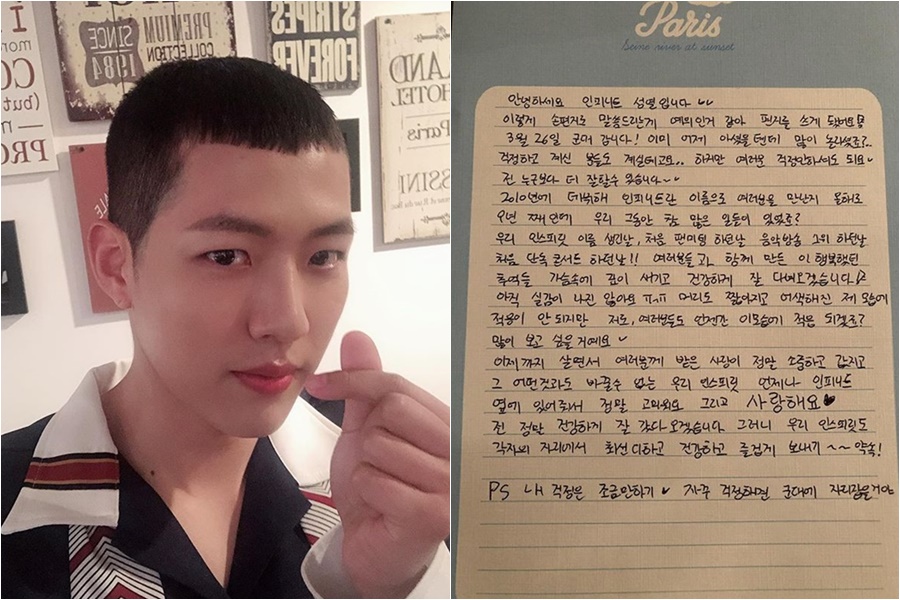 I
mor
CO
(but
PRO
PREMIUM
SINCE
COLLECTION
1984
STRIPES
FOREVER
LAND
HOTEL
Paris
SSINI
Paris
Seine river at sunset
안녕하세요 인피니트 성열입니다
이렇게 손편지로 말씀드리는게 예의인거 같아 편지를 쓰게 됐어요
3월 26일 군대 갑니다! 이미 어제 아셨을텐데 많이 놀라셨죠?..
걱정하고 계신 분들도 계실테고요.. 하지만 여러분 걱정안하셔도 되요
전 누구보다 더 잘할수 있습니다~
2010년에 데뷔해 인피니트란 이름으로 여러분을 만난지 올해로
9년 째인데 우리 그동안 참 많은 일들이 있었죠?
우리 인스피릿 이름 생긴날, 처음 팬미팅 하던날 음악방송 1위 하던날
처음 단독 콘서트 하던날!! 여러분들과 함께 만든 이 행복했던
추억들 가슴속에 깊이 새기고 건강하게 잘 다녀오겠습니다
아직 실감이 나진 않아요 ㅠㅠ 머리도 짧아지고 어색해진 제 모습에
적응이 안 되지만 저도, 여러분들도 언젠간 이모습에 적응 되겠죠?
많이 보고 싶을거예요
이제까지 살면서 여러분께 받은 사랑이 정말 소중하고 값지고
그 어떤것과도 바꿀수 없는 우리 인스피릿 언제나 인피니트
옆에 있어줘서 정말 고마워요 그리고 사랑해요
전 정말 건강하게 잘 갔다오겠습니다 그러니 우리 인스피릿도
각자의 자리에서 최선 다하고 건강하고 즐겁게 보내기 ~~ 약속!
PS 내 걱정은 조금만하기 자꾸 걱정하면 군대에 자리잡을거야